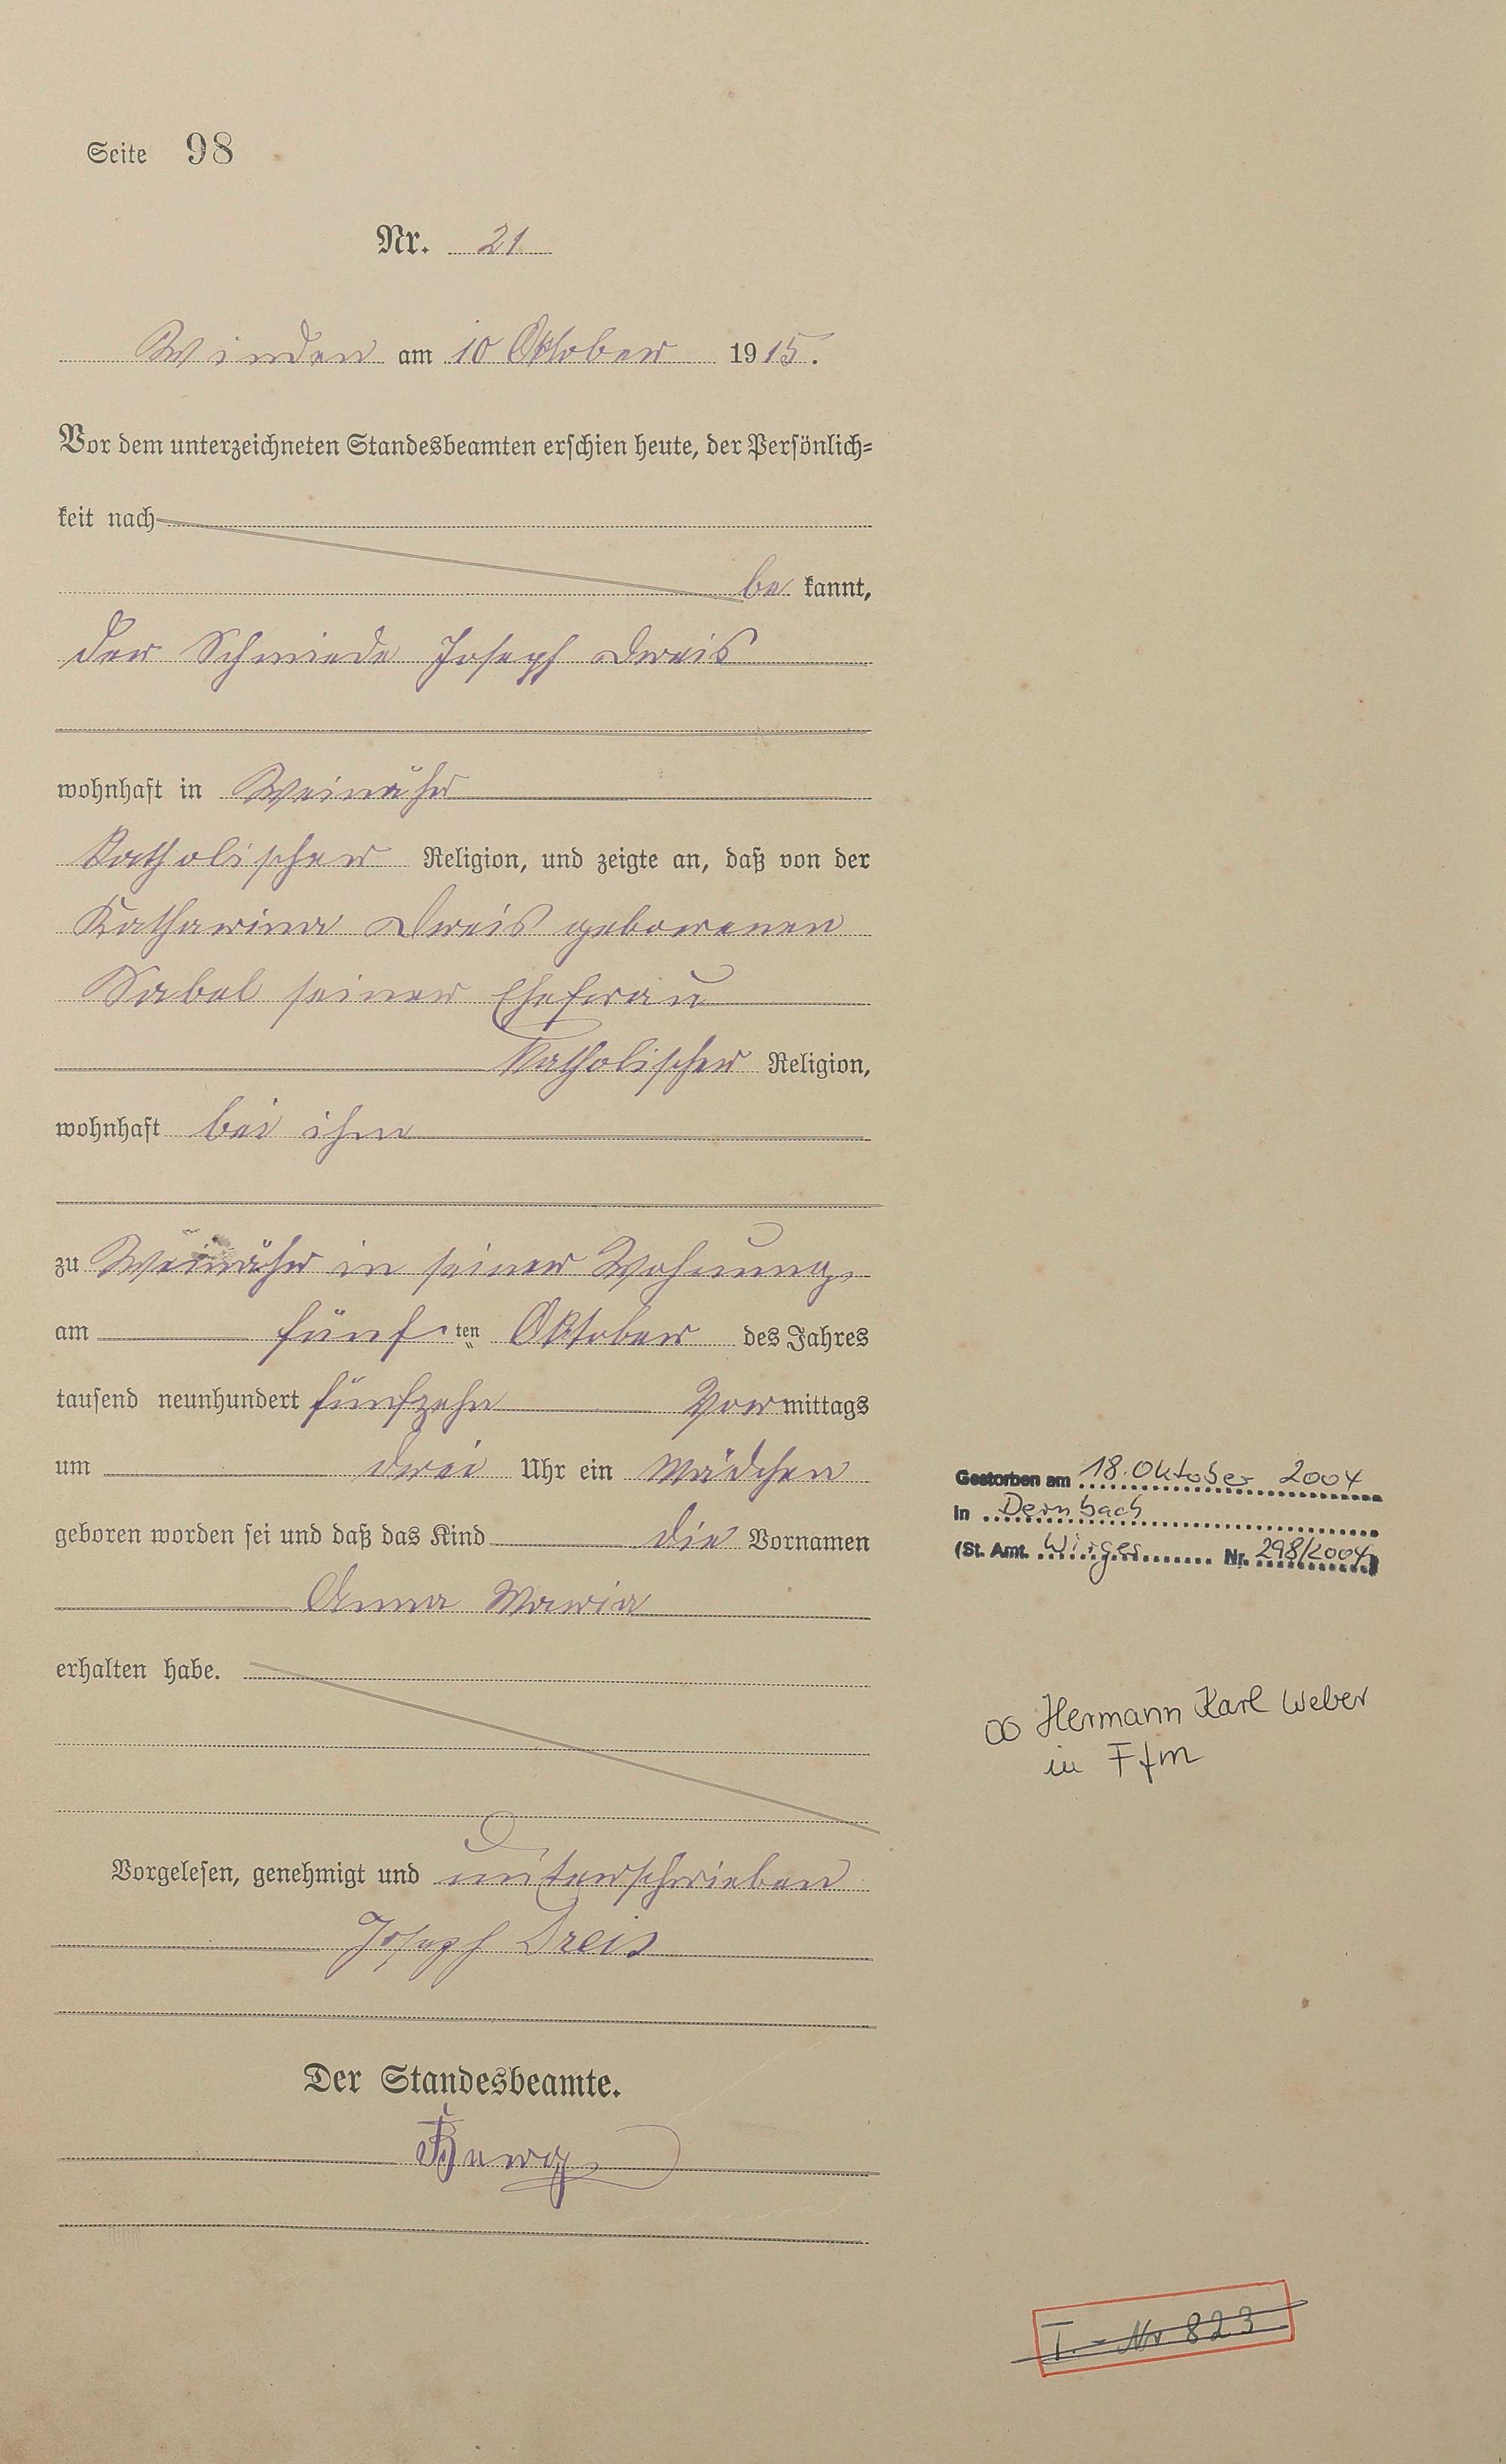 Seite 98
Nr. 21
Winden am 10 Oktober 1915.
Vor dem unterzeichneten Standesbeamten erschien heute, der Persönlich=
keit nach
be kannt,
der Schmiede Joseph Dreis
wohnhaft in Weinähr
Katholischer Religion, und zeigte an, daß von der
Katharina Dreis geborenen
Sabel seiner Ehefrau
Katholischer Religion,
wohnhaft bei ihm
zu Weinähr in seiner Wohnung,
am fünften Oktober des Jahres
tausend neunhundert fünfzehn Vormittags
um drei Uhr ein Mädchen
geboren worden sei und daß das Kind die Vornamen
Anna Maria
erhalten habe.
Vorgelesen, genehmigt und unterschrieben
Joseph Dreis
Der Standesbeamte.
Gestorben am 18. Oktober 2004
in Dernbach
(St. Amt. Wirges Nr. 298/2004)
∞ Hermann Karl Weber
in Ffm
T. - Nr 823